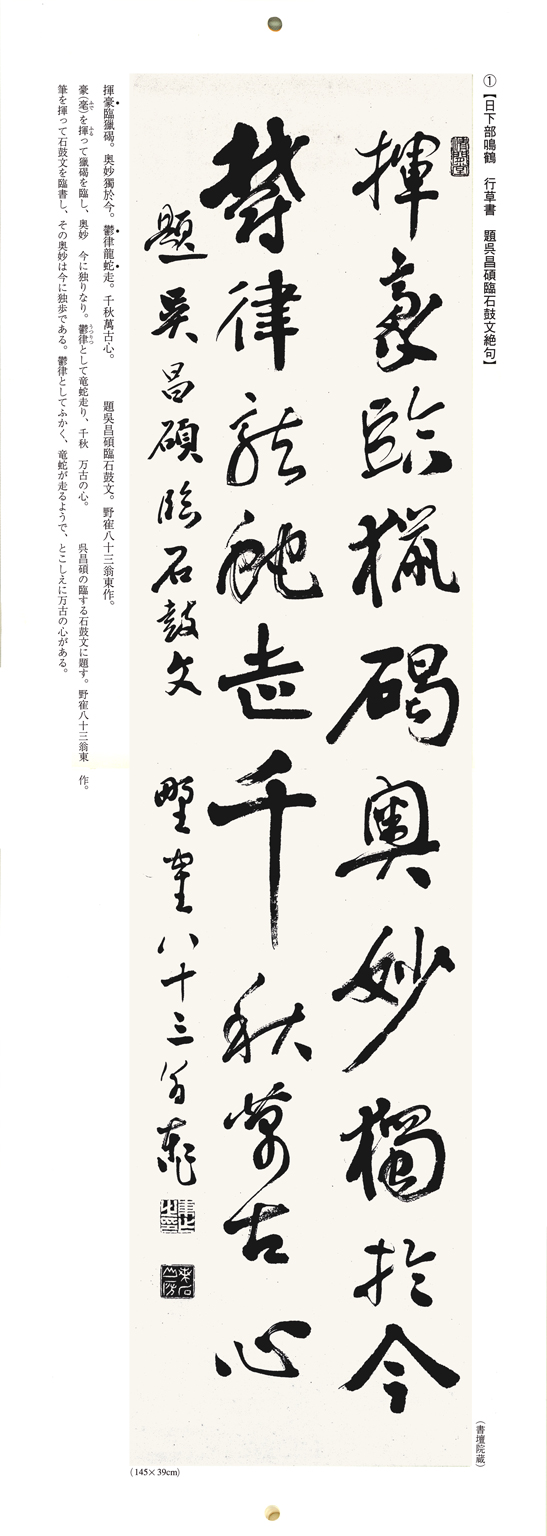 ①【日下部鳴鶴　行草書　題呉昌碩臨石鼓文絶句】
（書壇院蔵）
揮豪臨獵碣奥妙獨於今
欝律龍蛇走千秋萬古心
題吴昌碩臨石鼓文　野寉八十三翁東作
（145×39cm）
揮豪臨獵碣。奥妙獨於今。鬱律龍蛇走。千秋萬古心。　　題呉昌碩臨石鼓文。野寉八十三翁東作。
豪（毫）を揮って獵碣を臨し、奥妙　今に独りなり。鬱律として竜蛇走り、千秋　万古の心。　　呉昌碩の臨する石鼓文に題す。野寉八十三翁東　作。
筆を揮って石鼓文を臨書し、その奥妙は今に独歩である。鬱律としてふかく、竜蛇が走るようで、とこしえに万古の心がある。